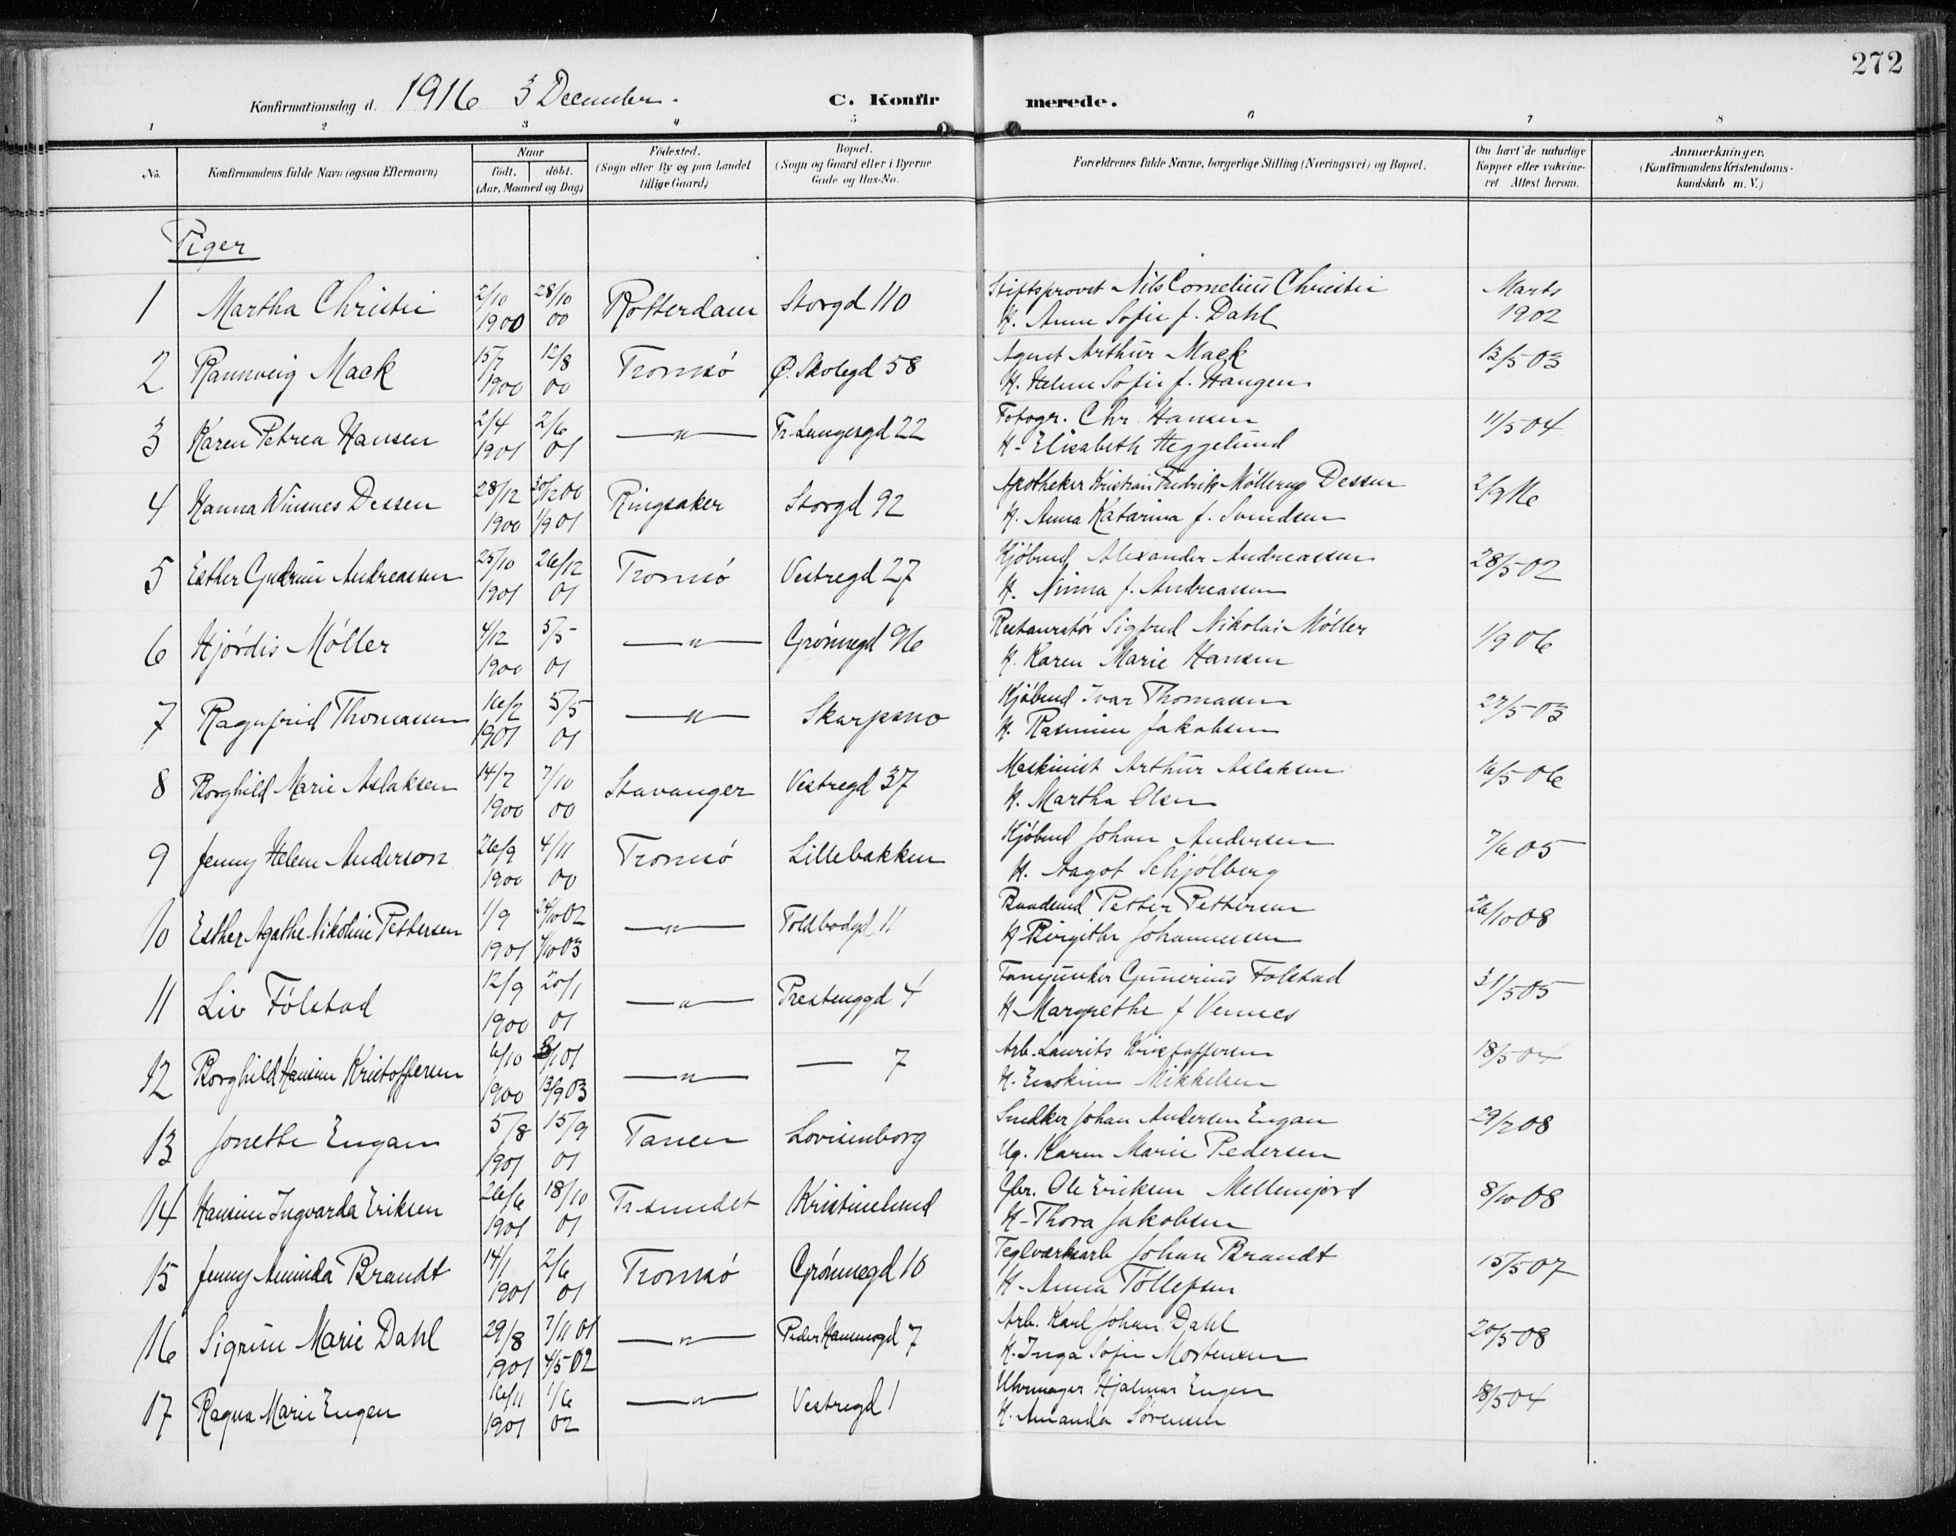 272
Konfirmationsdag d. 1916 3 December.
C. Konfirmerede.
1 2 3 4 5 6 7 8
No. Konfirmandens fulde Navn (ogsaa Efternavn)
Naar født. døbt. (Aar, Maaned og Dag)
Fødested. (Sogn eller By og paa Landet tillige Gaard)
Bopæl. (Sogn og Gaard eller i Byerne Gade og Hus-No.
Forældrenes fulde Navne, borgerlige Stilling (Næringsvei) og Bopæl.
Om havt de naturlige Kopper eller vakcineret Attest herom.
Anmærkninger. (Konfirmandens Kristendomskundskab m. V.)
Piger
1 Martha Christie 2/10 1900 28/10 00 Rotterdam Storgd 110 Stiftsprovst Nils Cornelius Christie Marts
H. Anne Sofie f. Dahl 1902
2 Rannveig Mack 15/7 1900 12/8 00 Tromsø Ø. Skolegd 58 Agent Arthur Mack 13/5 03
H. Helene Sofie f. Hangen
3 Karen Petrea Hansen 2/4 1901 2/6 01 —"— Tr. Langesgd 22 Fotogr. Chr. Hansen 11/5 04
H. Elisabeth Heggelund
4 Hanna Winsnes Dessen 28/12 1900 30/12 00 1/9 01 Ringsaker Storgd 92 Apotheker Kristian Fredrik Møllerup Dessen 2/9 16
H. Anna Katarina f. Svendsen
5 Esther Gudrun Andreassen 25/10 1901 26/12 01 Tromsø Vestregd 27 Kjøbmd Alexander Andreassen 28/5 02
H. Ninna f. Andreassen
6 Hjørdis Møller 4/12 1900 5/5 01 —"— Grønnegd 96 Restauratør Sigfred Nikolai Møller 1/9 06
H. Karen Marie Hansen
7 Ragnfrid Thomassen 16/2 1901 5/5 01 —"— Skarpsno Kjøbmd Ivar Thomassen 27/5 03
H. Rasmine Jakobsen
8 Borghild Marie Aslaksen 14/7 1900 7/10 00 Stavanger Vestregd 37 Maskinist Arthur Aslaksen 16/5 06
H. Martha Olsen
9 Jenny Helene Anderson 26/9 1900 4/11 00 Tromsø Lillebakken Kjøbmd Johan Andersen 7/6 05
H. Aagot Schjølberg
10 Esther Agathe Nikoline Pettersen 1/9 1901 24/10 02 4/10 03 —"— Toldbodgd 11 Petter Pettersen 26/10 08
H Birgithe Johannessen
11 Liv Følstad 12/9 1900 20/1 01 —"— Prestenggd 4 Fanejunker Gunerius Følstad 31/5 05
H Margrethe f Vennes
12 Borghild Hansine Kristoffersen 6/10 1900 /1 01 13/9 03 —"— — 7 Arb. Laurits Kristoffersen 18/5 04
H. Enokine Mikkelsen
13 Jonethe Engan 5/8 1901 15/9 01 Tanen Lovisenborg Snedker Johan Andersen Engan 29/2 08
Ug. Karen Marie Pedersen
14 Hansine Ingvarda Eriksen 26/6 1901 18/10 01 Tr.sundet Kristinelund Gbr. Ole Eriksen Mellemjord 8/10 08
H. Thora Jakobsen
15 Jenny Aminda Brandt 14/1 1901 2/6 01 Tromsø Grønnegd 10 Teglværksarb Johan Brandt 15/5 07
H. Anna Tollefsen
16 Sigrun Marie Dahl 29/8 1901 7/11 01 4/5 02 —"— Peder Hansensgd 7 Arb. Karl Johan Dahl 20/5 08
H. Inga Sofie Mortensen
17 Ragna Marie Engen 16/11 1901 1/6 02 —"— Vestregd 1 Uhrmager Hjalmar Engen 18/5 04
H. Amanda Sørensen